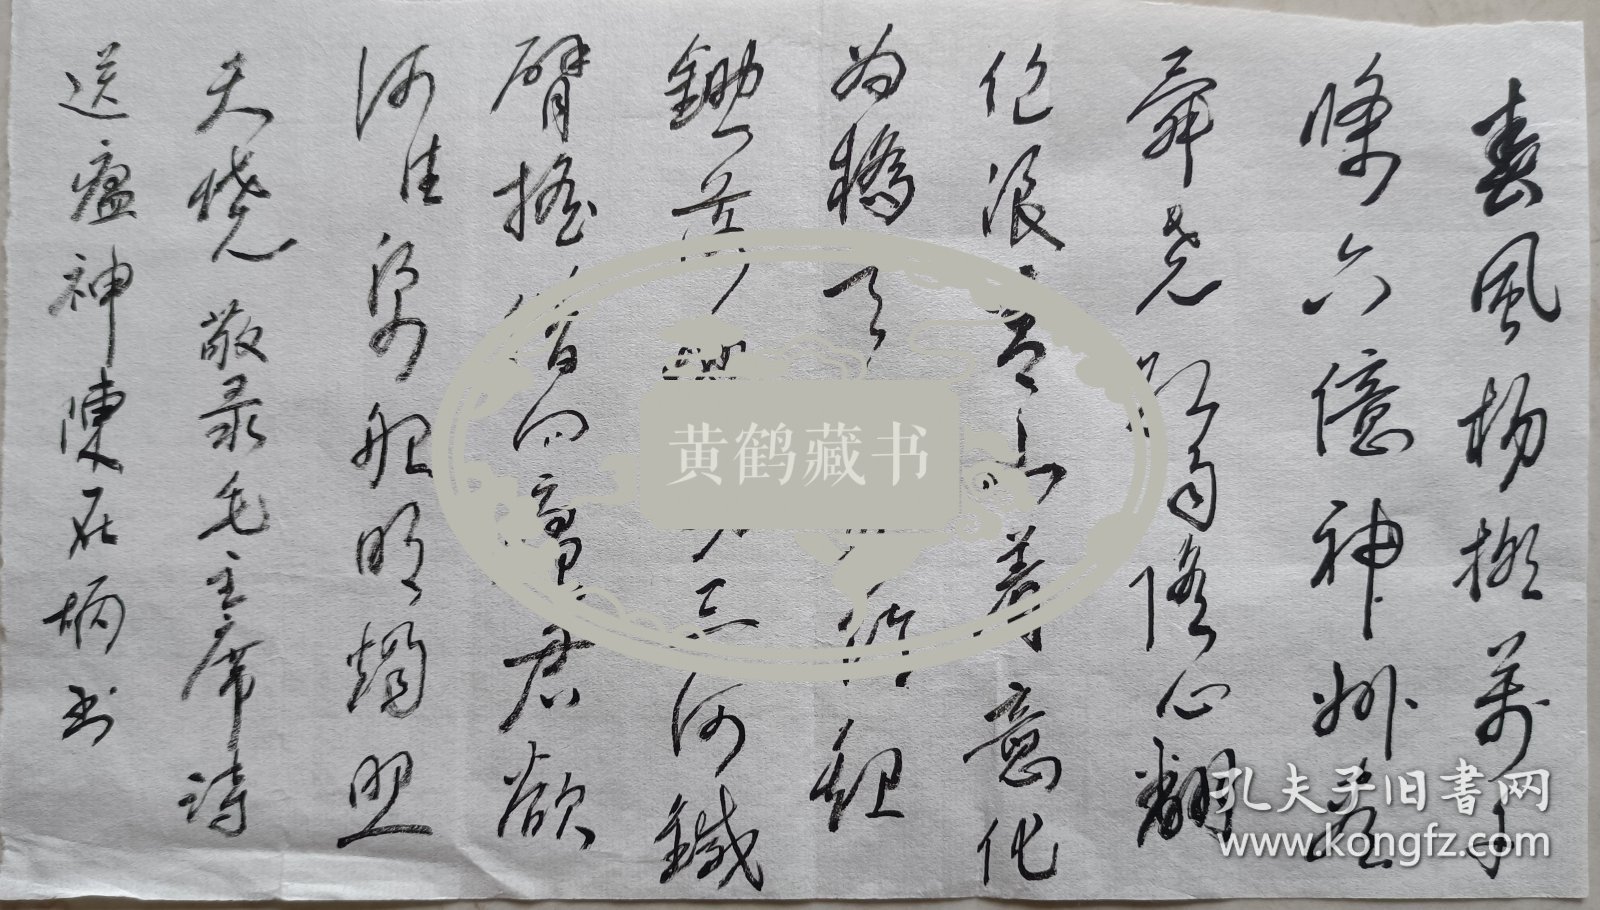 春風楊柳萬千
條六億神州盡
舜堯紅雨隨心翻
作浪青山着意化
为橋天嶺銀
鋤落地動三河鐵
臂搖借問瘟君欲
何往紙船明燭照
天燒 敬录毛主席诗
送瘟神陳在炳书
黄鹤藏书
孔夫子旧书网
www.kongfz.com